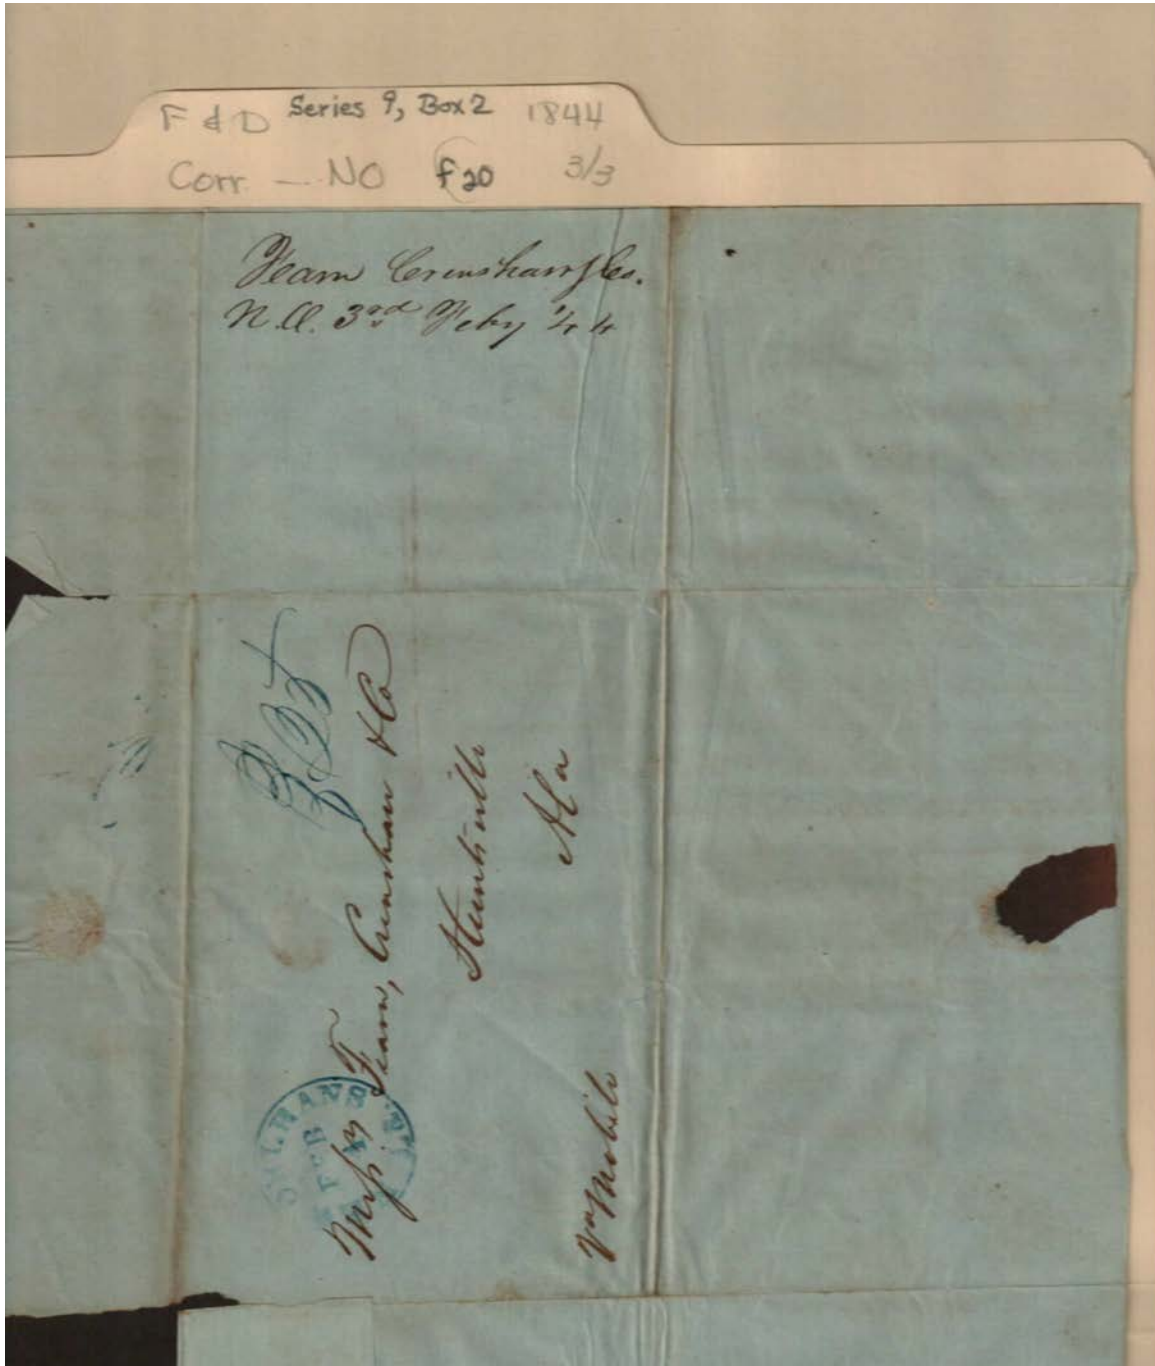 F & D Series 9, Box 2 1844
Corr. — NO f20 3/3
Fearn Crenshaw & Co.
N.O. 3rd Feby '44
Messrs. Fearn, Crenshaw & Co
Huntsville
Ala
Via Mobile
FEB
3